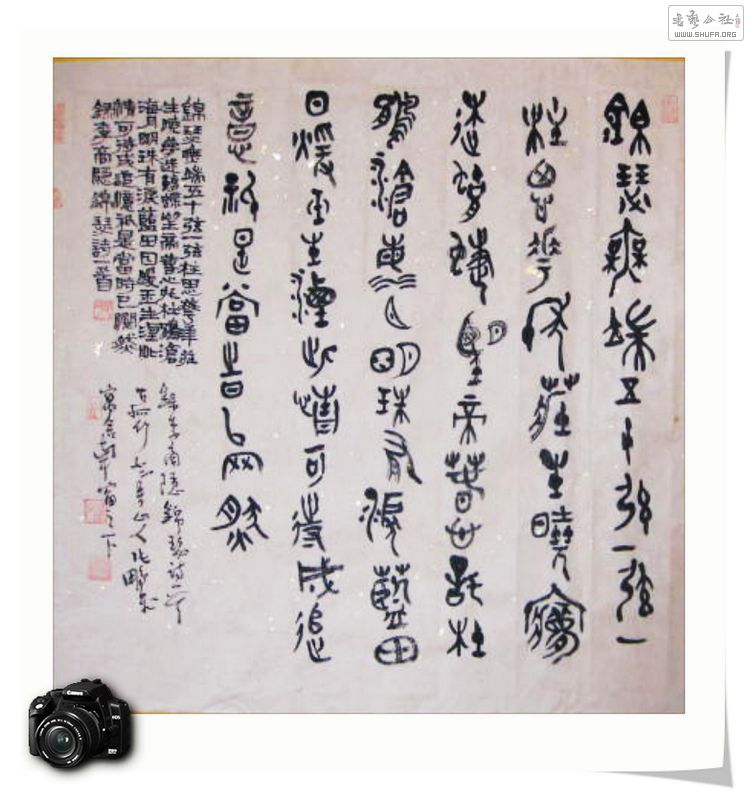 書藝公社
WWW.SHUFA.ORG
錦瑟無端五十弦一弦一
柱思華年莊生曉夢
迷蝴蝶望帝春心託杜
鵑滄海月明珠有淚藍田
日煖玉生煙此情可待成追
憶祇是當時已罔然
錦瑟無端五十弦一弦柱思華年莊
生曉夢迷蝴蝶望帝春心托杜鵑滄
海月明珠有淚藍田日暖玉生煙此
情可待成追憶祇是當時已惘然
錄李商隱錦瑟詩一首
錄李商隱錦瑟詩一首
之下
Canon
EOS